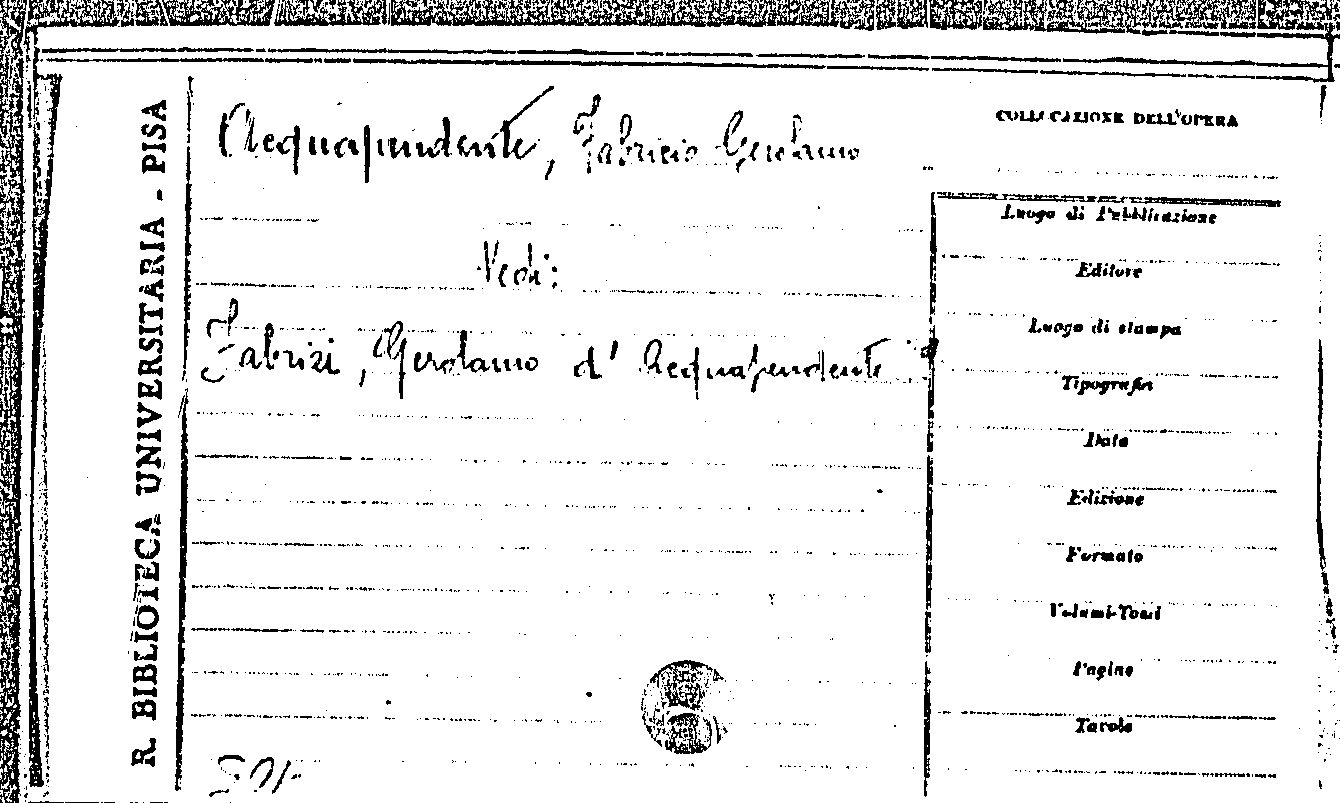 R. BIBLIOTECA UNIVERSITARIA - PISA
Acquapendente, Fabricio Gerolamo
Vedi:
Fabrizi, Gerolamo d' Acquapendente
COLLOCAZIONE DELL'OPERA
Luogo di Pubblicazione
Editore
Luogo di stampa
Tipografia
Data
Edizione
Formato
Volumi-Tomi
Pagine
Tavole